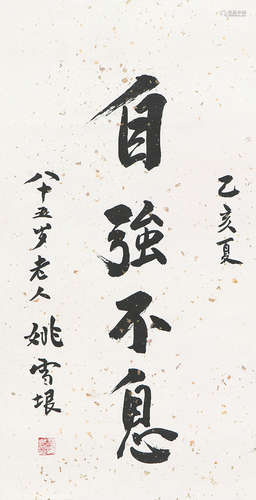 乙亥夏
自強不息
八十五岁老人
姚雪垠